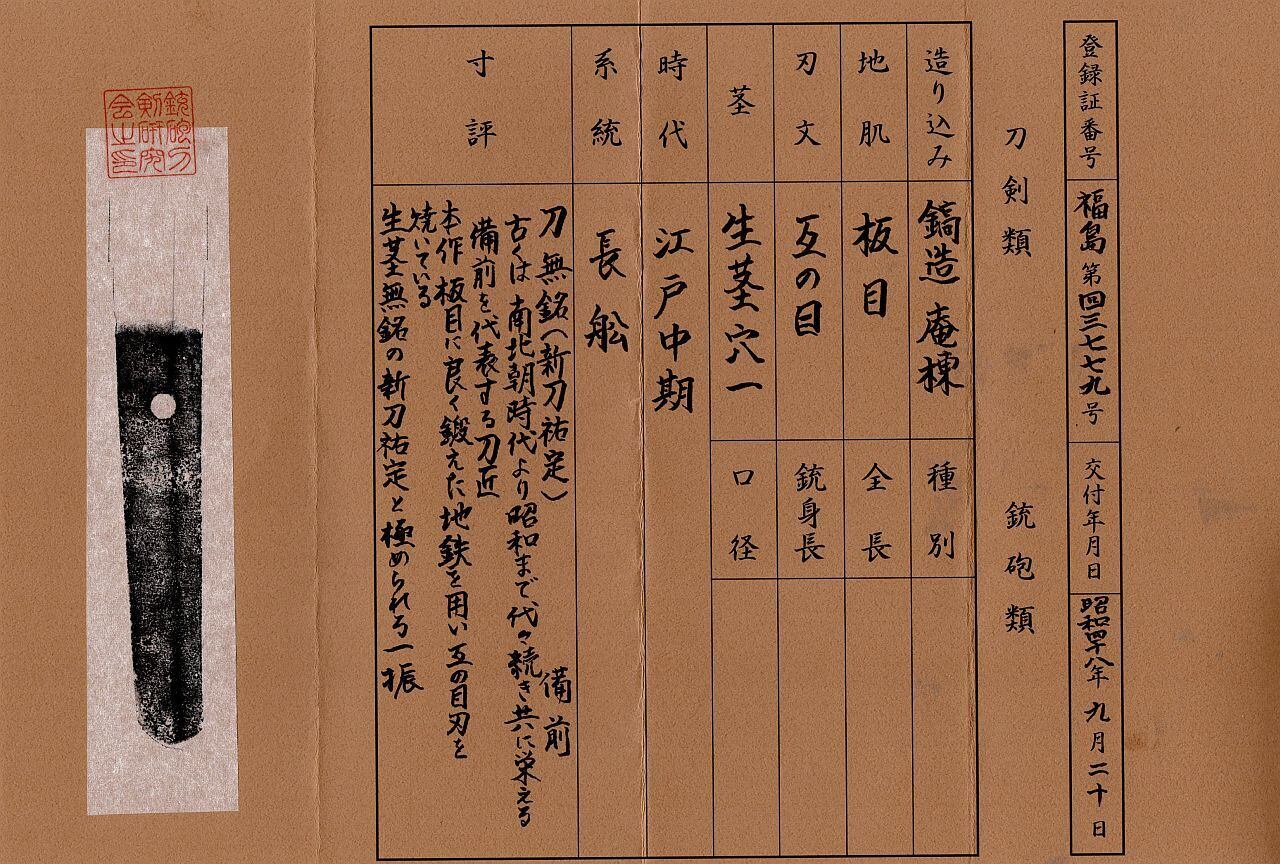 登録証番号 福島第四三七七九号 交付年月日 昭和四十八年九月二十日
刀剣類 銃砲類
造り込み 鎬造 庵棟 種別
地肌 板目 全長
刃文 互の目 銃身長
茎 生茎穴一 口径
時代 江戸中期
系統 長舩
寸評
刀 無銘(新刀祐定) 備前
古くは南北朝時代より昭和まで代々続き共に栄える
備前を代表する刀匠
本作 板目に良く鍛えた地鉄を用い互の目刃を
焼いている
生茎無銘の新刀祐定と極められる一振
銃砲刀
剣研究
会之印